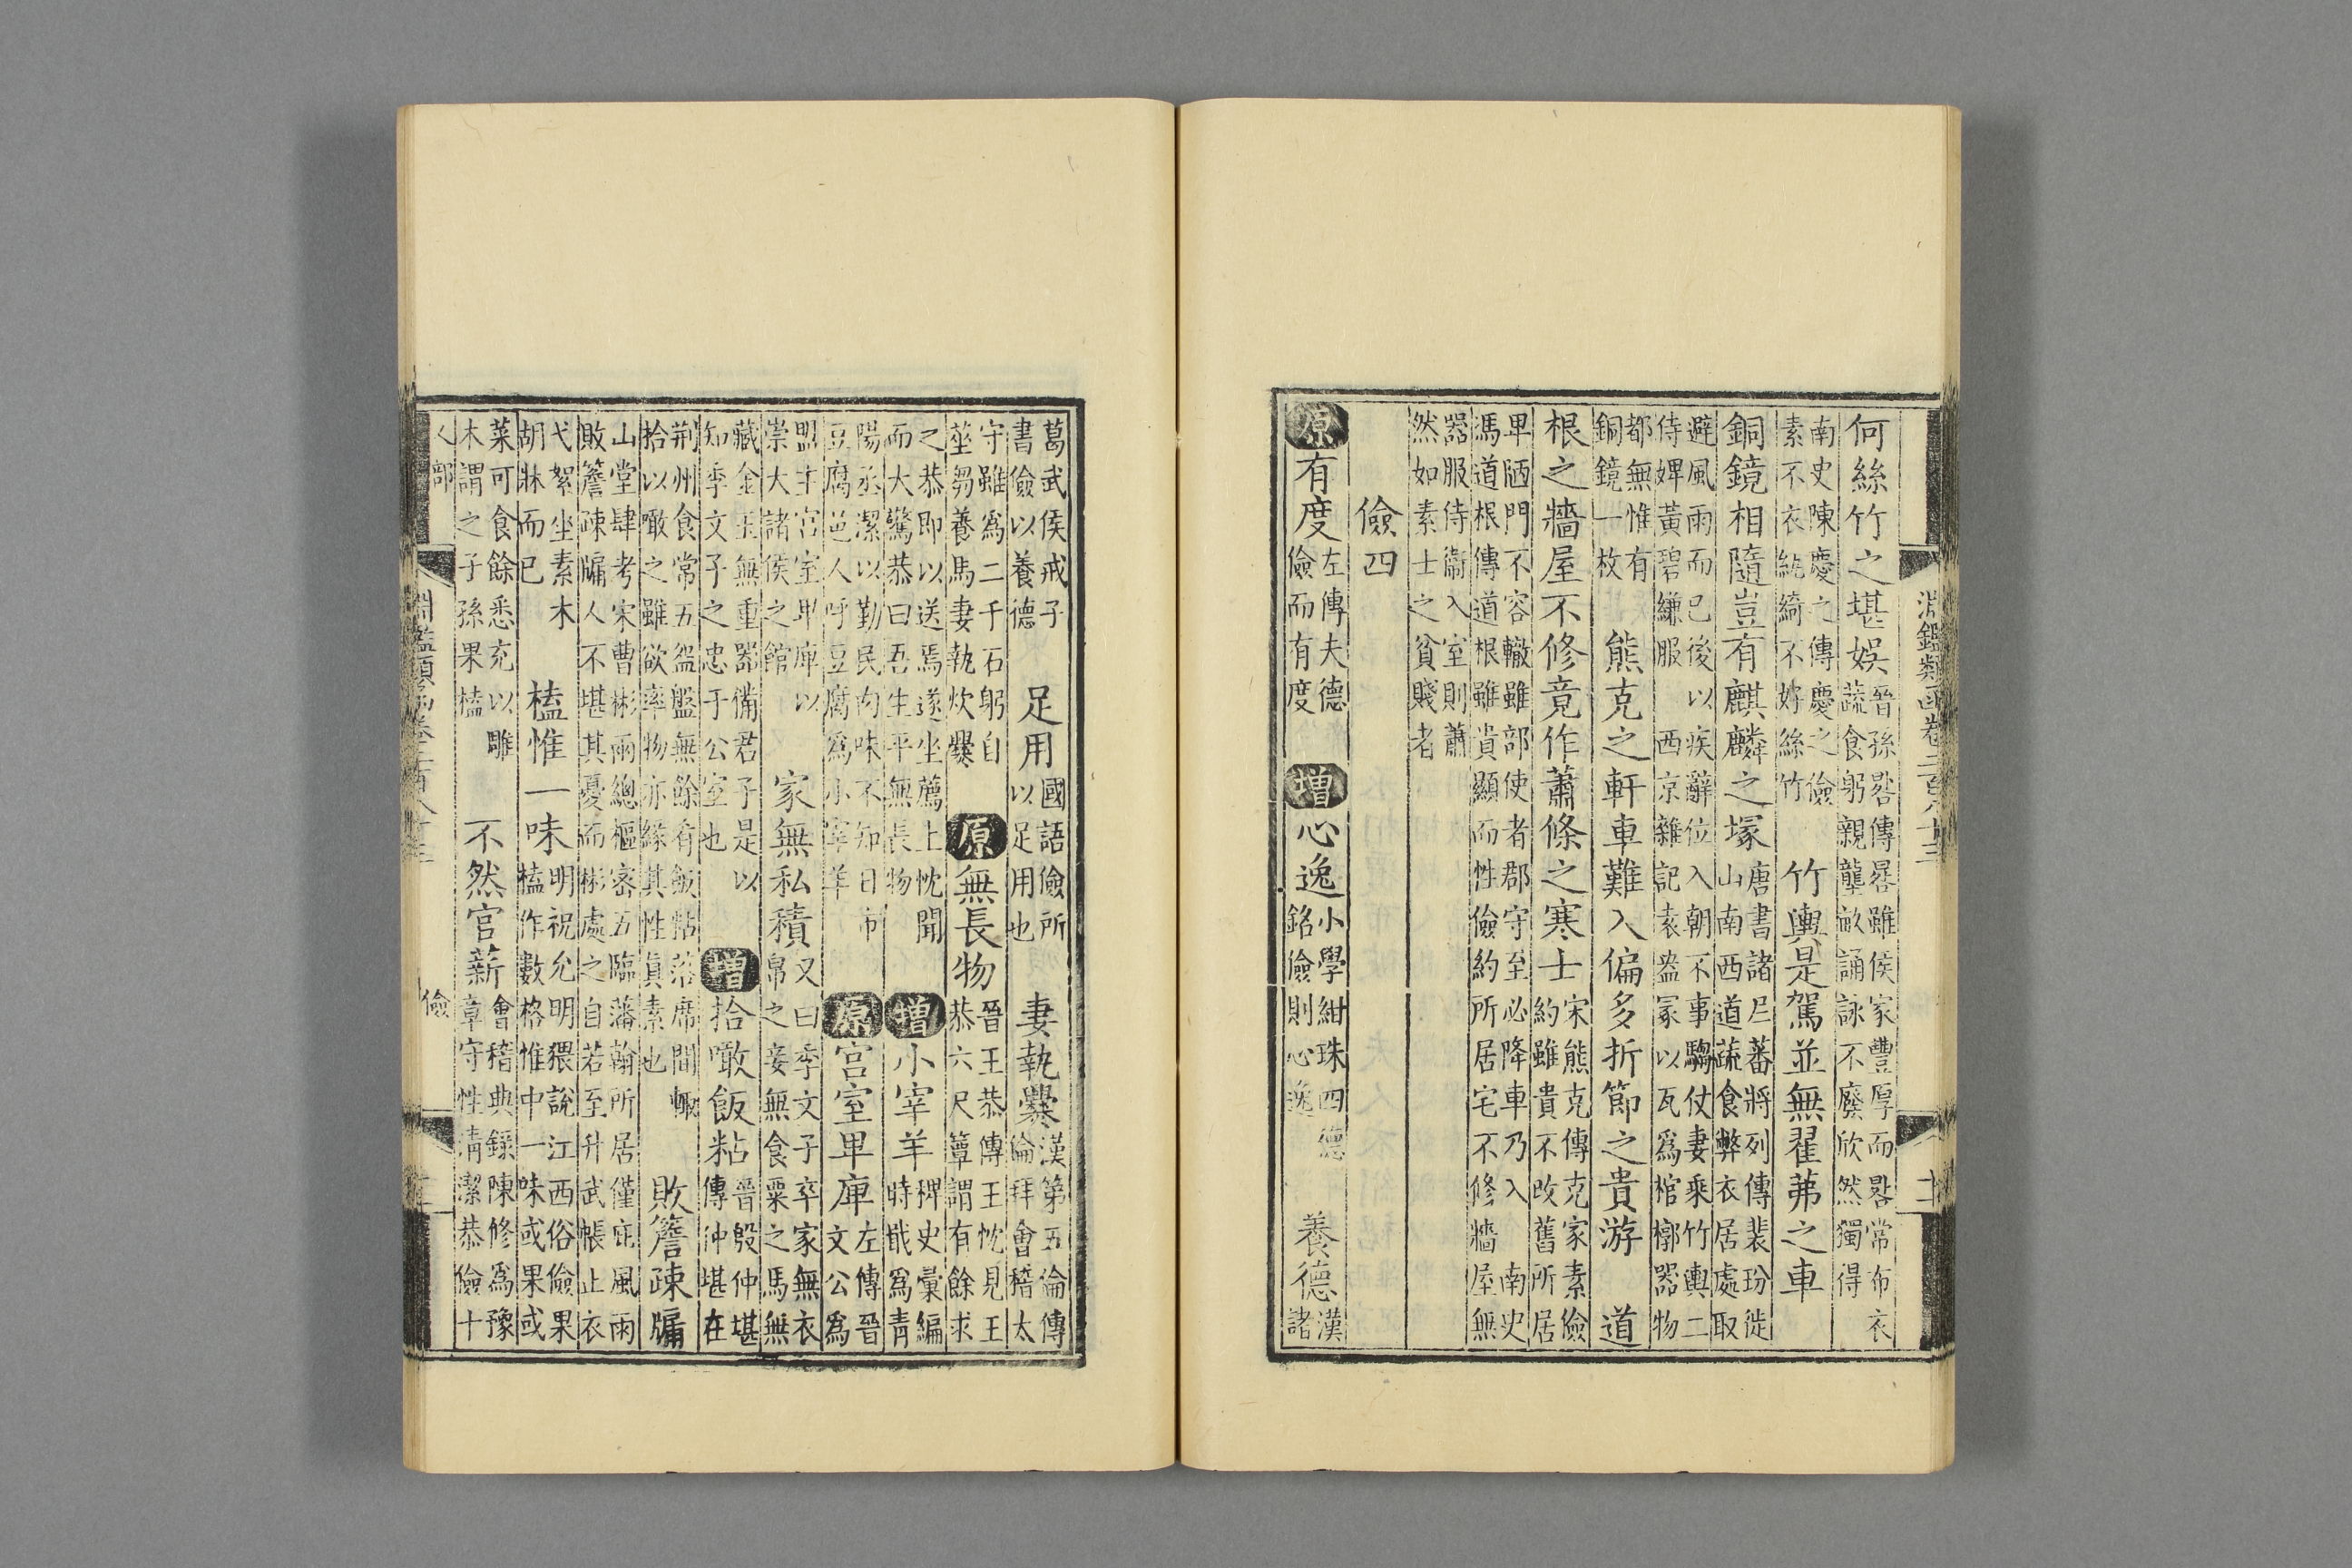 淵鑑類函卷二百八十三
何絲竹之堪娛
晉孫晷傳晷雖侯家豐厚而晷常布衣
蔬食躬親壟畝誦詠不廢欣然獨得
南史陳慶之傳慶之儉
素不衣紈綺不好絲竹
竹輿是駕並無翟茀之車
銅鏡相隨豈有麒麟之塚
唐書諸尼蕃將列傳裴玢徙
山南西道蔬食弊衣居處取
避風雨而已後以疾辭位入朝不事騶仗妻乘竹輿二
侍婢黃碧縑服 西京雜記袁盎冢以瓦爲棺槨器物
都無惟有
銅鏡一枚
熊克之軒車難入偏多折節之貴游 道
根之牆屋不修竟作蕭條之寒士
宋熊克傳克家素儉
約雖貴不改舊所居
卑陋門不容轍雖部使者郡守至必降車乃入 南史
馮道根傳道根雖貴顯而性儉約所居宅不修牆屋無
器服侍衞入室則蕭
然如素士之貧賤者
儉四
原有度
左傳夫德
儉而有度
增心逸
小學紺珠四德
銘儉則心逸
養德
漢
諸
葛武侯戒子
書儉以養德
足用
國語儉所
以足用也
妻執爨
漢第五倫傳
倫拜會稽太
守雖爲二千石躬自
莝芻養馬妻執炊爨
原無長物
晉王恭傳王忱見王
恭六尺簟謂有餘求
之恭即以送焉遂坐薦上忱聞
而大驚恭曰吾生平無長物
增小宰羊
稗史彙編
時戢爲青
陽丞潔以勤民肉味不知日市
豆腐邑人呼豆腐爲小宰羊
原宮室卑庳
左傳晉
文公爲
盟主宮室卑庳以
崇大諸侯之館
家無私積
又曰季文子卒家無衣
帛之妾無食粟之馬無
藏金玉無重器備君子是以
知季文子之忠于公室也
增拾噉飯粘
晉殷仲堪
傳仲堪在
荆州食常五盌盤無餘肴飯粘落席間輙
拾以噉之雖欲率物亦緣其性眞素也
敗簷疎牖
山堂肆考宋曹彬兩總樞密五臨藩翰所居僅庇風雨
敗簷疎牖人不堪其憂而彬處之自若至升武帳止衣
弋絮坐素木
胡牀而已
榼惟一味
明祝允明猥說江西俗儉果
榼作數格惟中一味或果或
菜可食餘悉充以雕
木謂之子孫果榼
不然官薪
會稽典錄陳修爲豫
章守性清潔恭儉十
人部
淵鑑類函卷二百八十三
儉